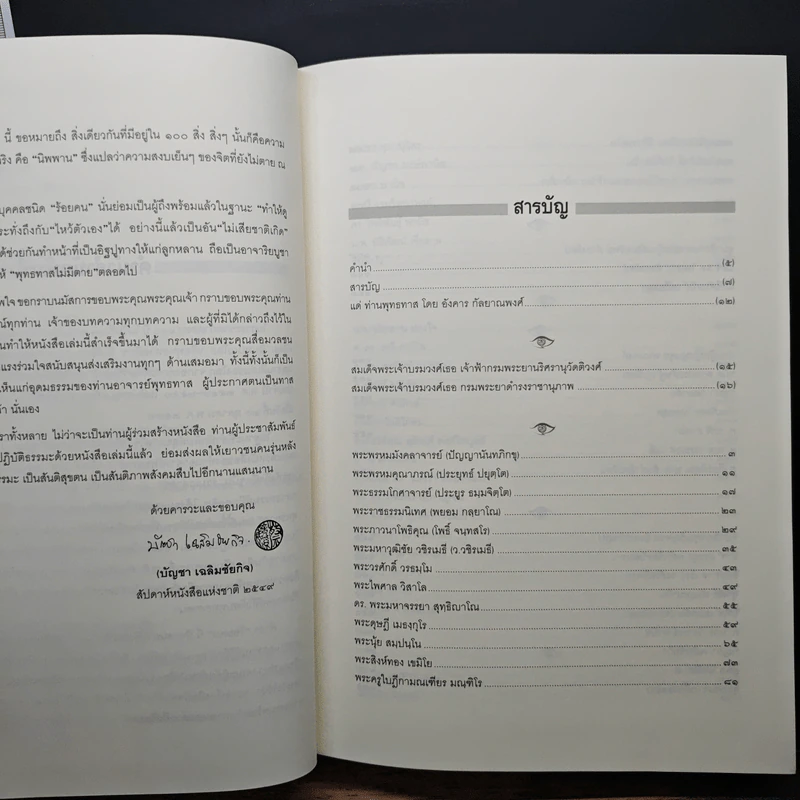 นี้ ขอหมายถึง สิ่งเดียวกันที่มีอยู่ใน ๑๐๐ สิ่ง สิ่งๆ นั้นก็คือความ
ริง คือ “นิพพาน” ซึ่งแปลว่าความสงบเย็นๆ ของจิตที่ยังไม่ตาย ณ
บุคคลชนิด “ร้อยคน” นั่นย่อมเป็นผู้ถึงพร้อมแล้วในฐานะ “ทำให้ดู
ระทั่งถึงกับ“ไหว้ตัวเอง”ได้ อย่างนี้แล้วเป็นอัน“ไม่เสียชาติเกิด”
ด้ช่วยกันทำหน้าที่เป็นอิฐปูทางให้แก่ลูกหลาน ถือเป็นอาจาริยบูชา
ห้ “พุทธทาสไม่มีตาย”ตลอดไป
พใจ ขอกราบนมัสการขอบพระคุณพระคุณเจ้า กราบขอบพระคุณท่าน
ณ์ทุกท่าน เจ้าของบทความทุกบทความ และผู้ที่มิได้กล่าวถึงไว้ใน
นทำให้หนังสือเล่มนี้สำเร็จขึ้นมาได้ กราบขอบพระคุณสื่อมวลชน
แรงร่วมใจสนับสนุนส่งเสริมงานทุกๆ ด้านเสมอมา ทั้งนี้ทั้งนั้นก็เป็น
เห็นแก่อุดมธรรมของท่านอาจารย์พุทธทาส ผู้ประกาศตนเป็นทาส
จ้า นั่นเอง
ราทั้งหลาย ไม่ว่าจะเป็นท่านผู้ร่วมสร้างหนังสือ ท่านผู้ประชาสัมพันธ์
ปฏิบัติธรรมะด้วยหนังสือเล่มนี้แล้ว ย่อมส่งผลให้เยาวชนคนรุ่นหลัง
รรมะ เป็นสันติสุขตน เป็นสันติภาพสังคมสืบไปอีกนานแสนนาน
ด้วยคารวะและขอบคุณ
บัญชา เฉลิมชัยกิจ
(บัญชา เฉลิมชัยกิจ)
สัปดาห์หนังสือแห่งชาติ ๒๕๔๙
สารบัญ
คำนำ (๕)
สารบัญ (๗)
แด่ ท่านพุทธทาส โดย อังคาร กัลยาณพงศ์ (๑๒)
สมเด็จพระเจ้าบรมวงศ์เธอ เจ้าฟ้ากรมพระยานริศรานุวัดติวงศ์ (๑๕)
สมเด็จพระเจ้าบรมวงศ์เธอ กรมพระยาดำรงราชานุภาพ (๑๖)
พระพรหมมังคลาจารย์ (ปัญญานันทภิกขุ) ๓
พระพรหมคุณาภรณ์ (ประยุทธ์ ปยุตฺโต) ๑๑
พระธรรมโกศาจารย์ (ประยูร ธมฺมจิตฺโต) ๑๗
พระราชธรรมนิเทศ (พยอม กลฺยาโณ) ๒๓
พระภาวนาโพธิคุณ (โพธิ์ จนฺทสโร) ๒๙
พระมหาวุฒิชัย วชิรเมธี (ว.วชิรเมธี) ๓๕
พระวรศักดิ์ วรธมฺโม ๔๓
พระไพศาล วิสาโล ๔๙
ดร. พระมหาจรรยา สุทฺธิญาโณ ๕๕
พระดุษฎี เมธงฺกุโร ๕๙
พระนุ้ย สมฺปนฺโน ๖๕
พระสิงห์ทอง เขมิโย ๗๓
พระครูใบฎีกามณเฑียร มณฺฑิโร ๘๑